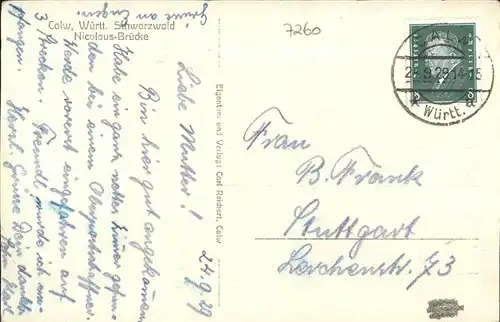 Calw, Württ. Schwarzwald
Nicolaus-Brücke
7260
Eigentum und Verlag: Carl Reichert, Calw
24.9.29
Liebe Mutter!
Bin hier gut angekommen
Habe ein ganz nettes Zimmer gefun-
den bei einem Oberpostschaffner.
Werde soeben eingefahren auf
3 Strecken. Freundl. wurde ich em-
pfangen. Herzl. Grüße Dein dankb.
Sohn
Grüße an Eugen.
CALW
29.14-15
Württ.
Frau
B. Frank
Stuttgart
Lerchenstr. 73